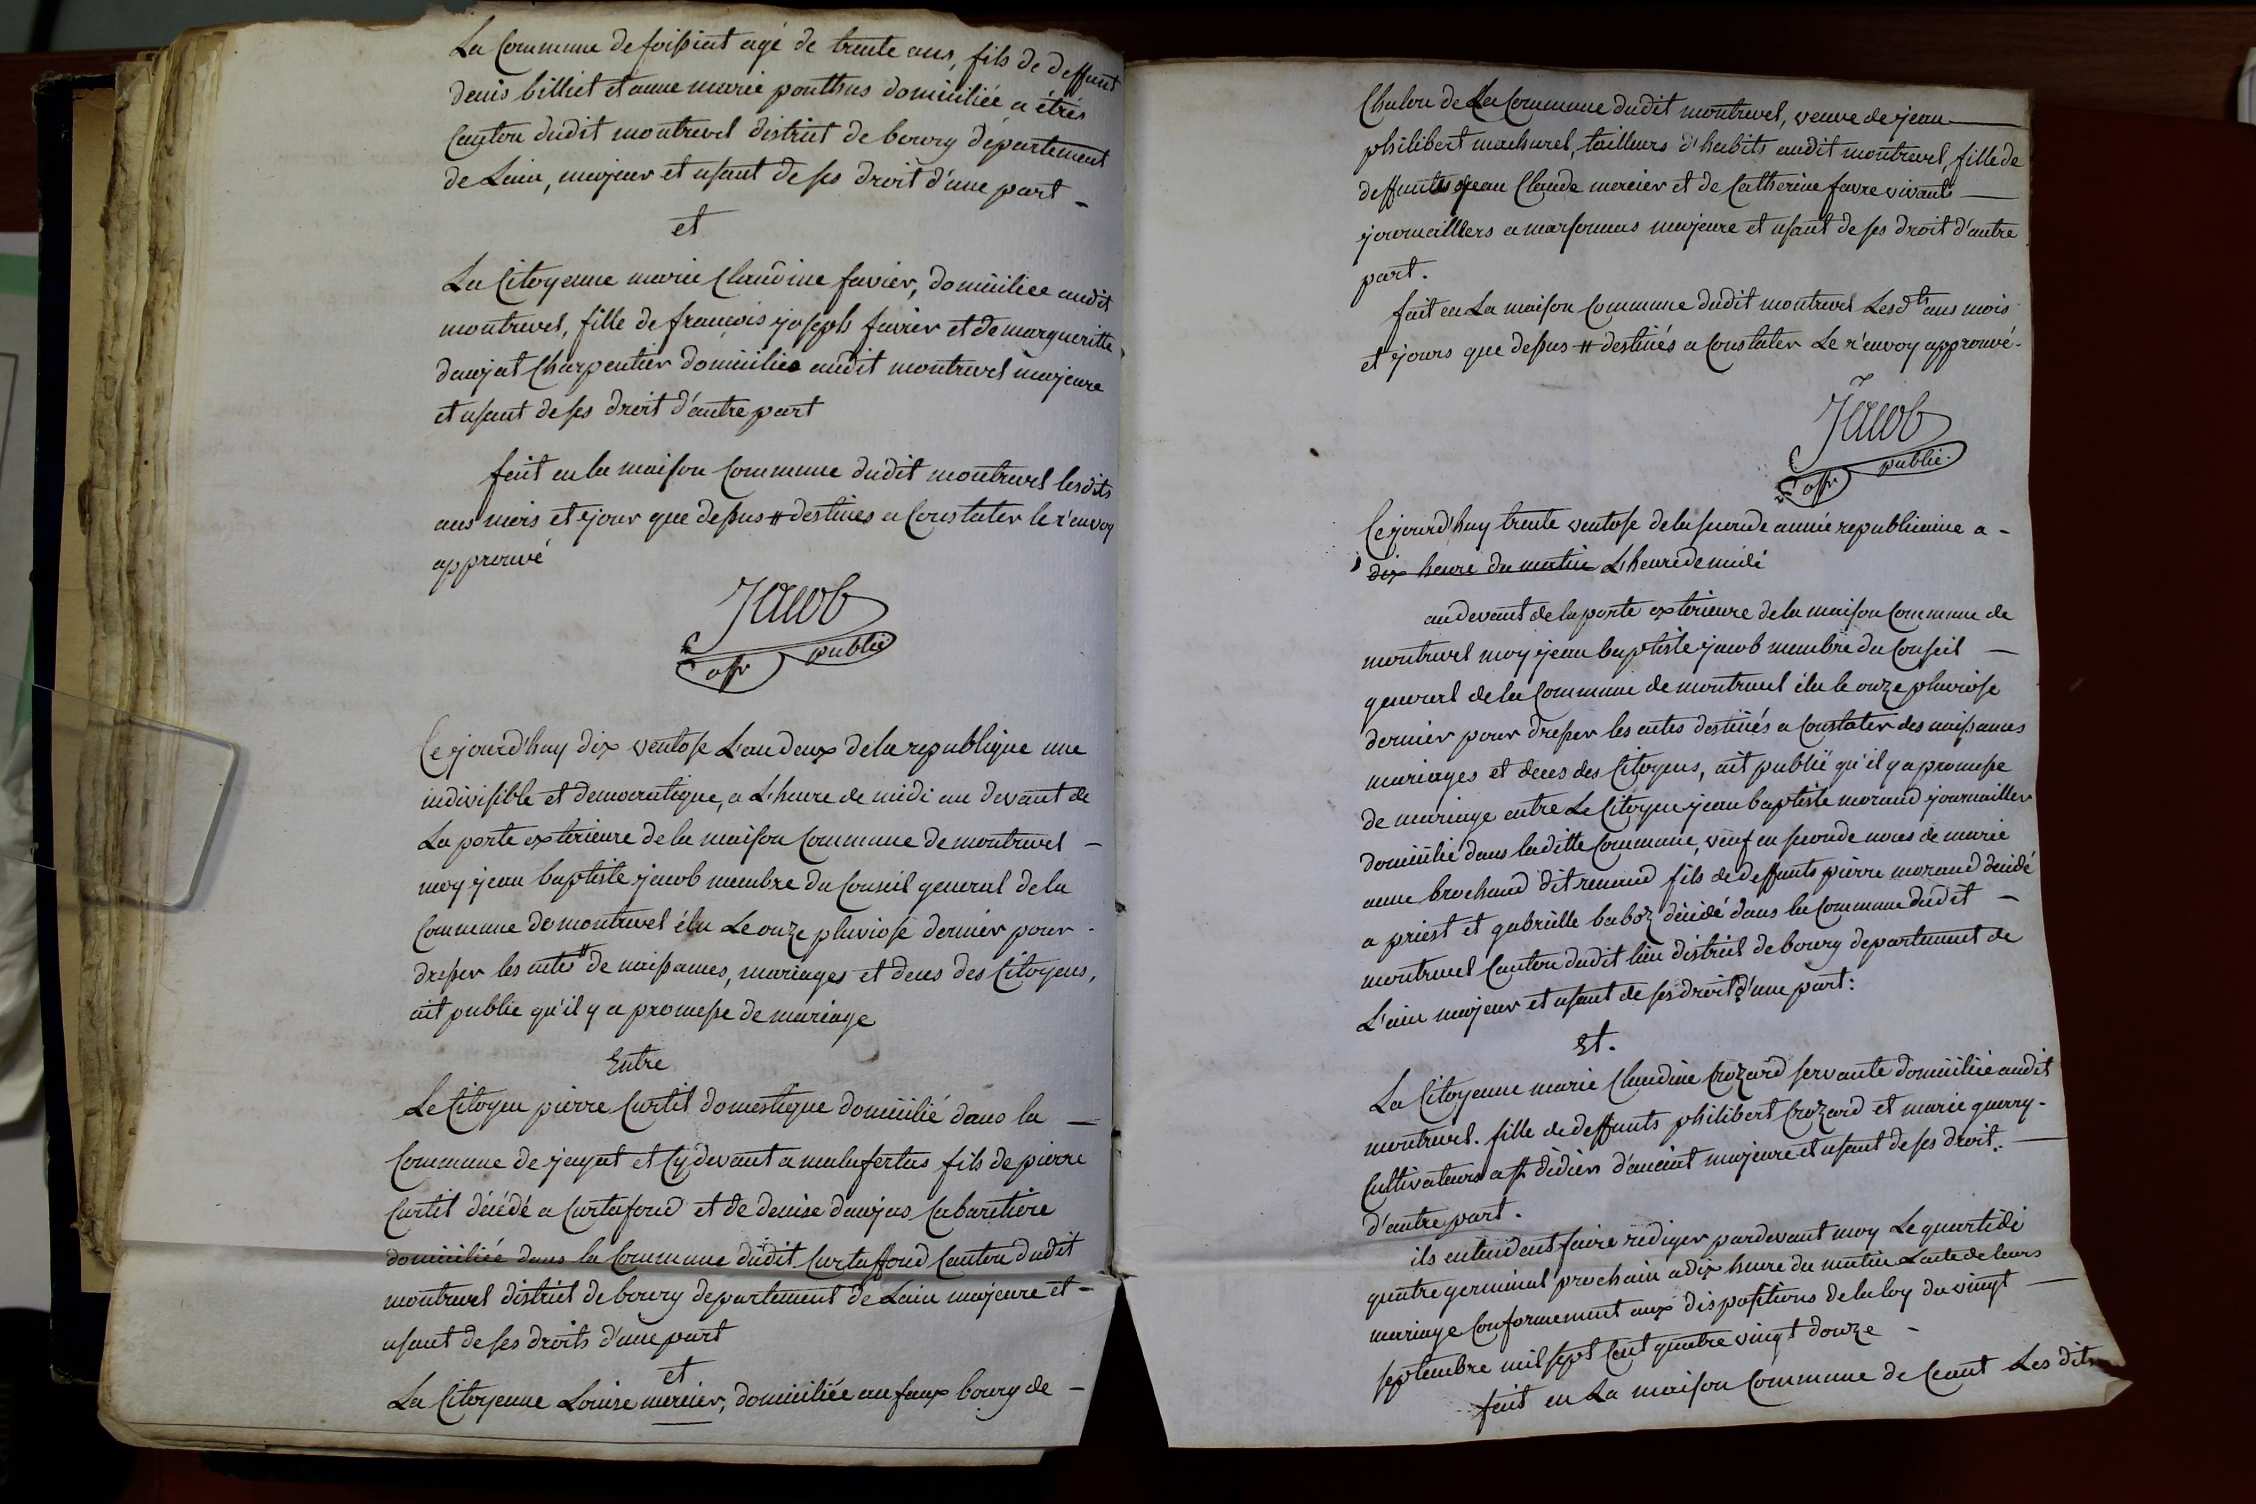 La Commune de foissiat agé de trente ans, fils de deffunt
denis billiet et anne marie ponthus domiciliée a étrés
Canton dudit montrevel district de bourg département
de Lain, majeur et usant de ses droit d'une part -
et
La Citoyenne marie Claudine favier, domiciliee audit
montrevel, fille de françois joseph favier et de margueritte
daujat Charpentier domicilies audit montrevel majeure
et usant de ses droit d'autre part
fait en la maison Commune dudit montrevel lesdits
ans mois et jour que dessus # destines a Constater le r'envoy
approuvé
Jacob
offr public
Ce jourd'huy dix ventose L'an deux de la republique une
indivisible et democratique, a L'heure de midi au devant de
La porte exterieure de la maison Commune de montrevel -
moy jean baptiste jacob membre du Conseil general de la
Commune de montrevel élu Le onze pluviose dernier pour -
dresser les actes # de naissances, mariages et deces des Citoyens,
ait publie qu'il y a promesse de mariage
Entre
Le Citoyen pierre Curtil domestique domicilié dans la -
Commune de jayat et Cy devant a malafertas fils de pierre
Curtil décédé a Curtafond et de denise daujas Cabaretiere
domiciliée dans la Commune dudit Curtaffond Canton dudit
montrevel district de bourg departement de Lain majeure et -
usant de ses droits d'une part
et
La Citoyenne Louise mercier, domiciliée au faux bourg de -
Chalon de La Commune dudit montrevel, veuve de jean
philibert machurel, tailleurs d'habits audit montrevel, fille de
deffunts jean Claude mercier et de Catherine favre vivants
journailliers a marsonnas majeure et usant de ses droit d'autre
part.
fait en La maison Commune dudit montrevel Lesdts ans mois
et jours que dessus # destinés a Constater Le r'envoy approuvé.
Jacob
offr public.
Ce jourd'huy trente ventose de la seconde année republicaine a -
dix heure du matin L'heure de midi
au devant de la porte exterieure de la maison Commune de
montrevel moy jean baptiste jacob membre du Conseil -
general de la Commune de montrevel élu le onze pluviose
dernier pour dresser les actes destinés a Constater des naissances
mariages et deces des Citoyens, ait publié qu'il y a promesse
de mariage entre Le Citoyen jean baptiste morand journaillier
domicilié dans laditte Commune, veuf en seconde noces de marie
anne brochand dit renaud fils de deffunts pierre morand décédé
a priest et gabrielle baboz décédé dans la Commune dudit -
montrevel Canton dudit lieu district de bourg departement de
L'ain majeur et usant de ses droit d'une part:
Et.
La Citoyenne marie Claudine Crozard servante domiciliée audit
montrevel. fille de deffunts philibert Crozard et marie guerry -
Cultivateurs a st didier d'auciat majeure et usant de ses droit.
d'autre part.
ils entendent faire rediger pardevant moy Le quartidi
quatre germinal prochain a dix heure du matin Lacte de leurs
mariage Conformement aux dispositions de la loy du vingt
septembre mil sept Cent quatre vingt douze -
fait en La maison Commune de Ceant Les dits